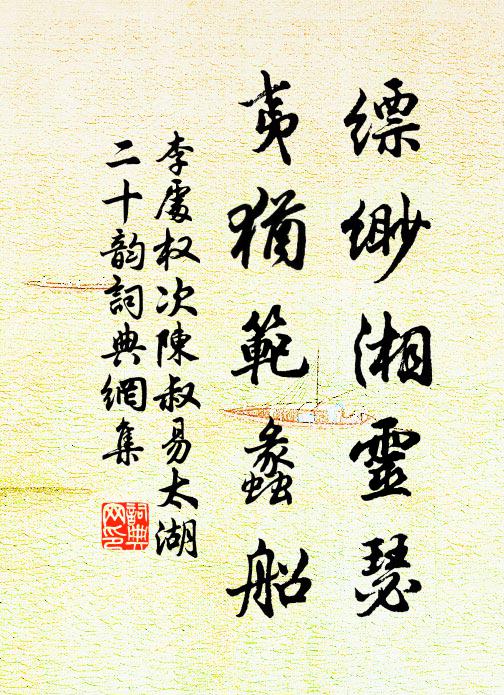 缥缈湘靈瑟
夷猶範蠡船
李處权次陳叔易太湖
二十韵詞典網集
詞典网印